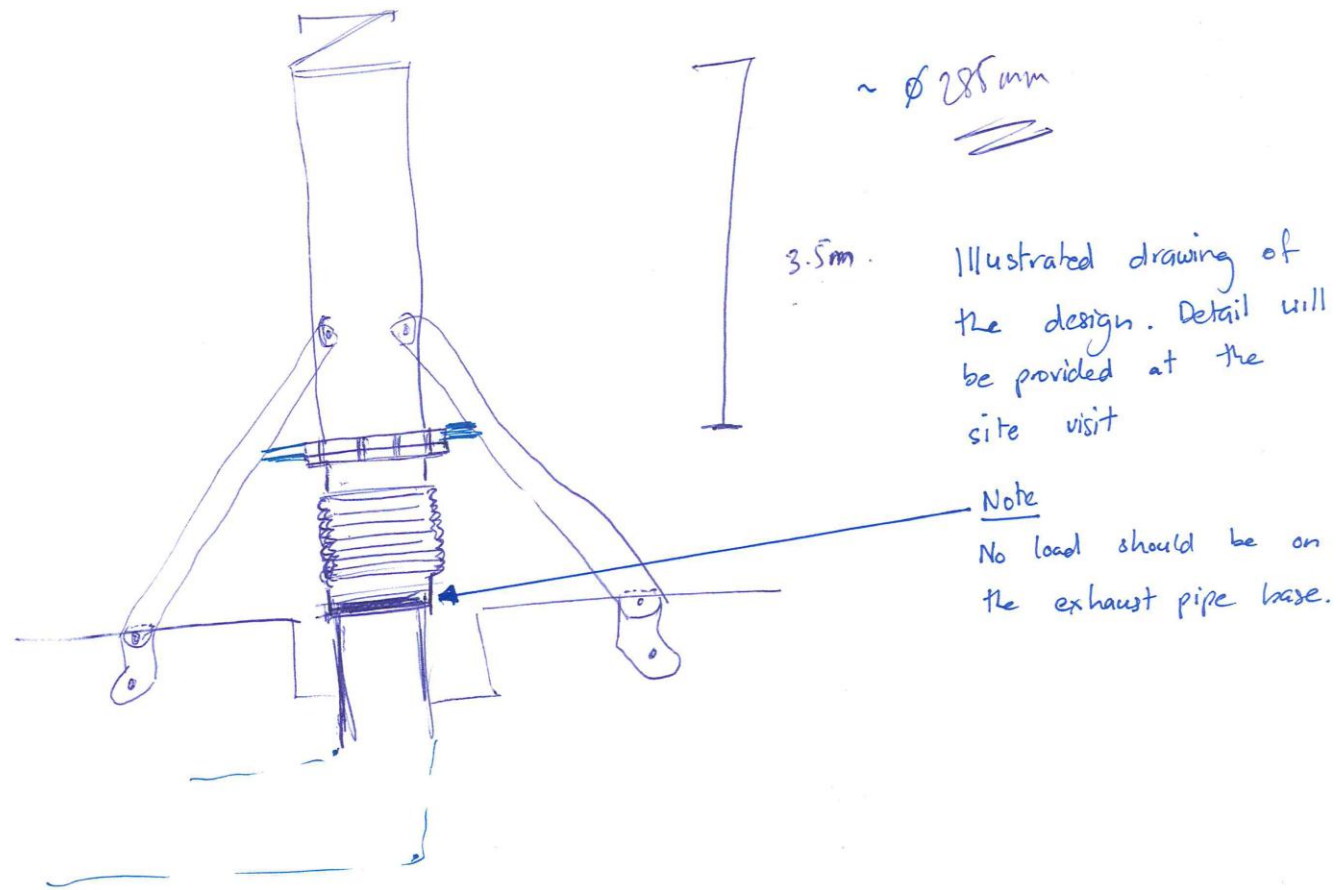 ~ ø 285mm
3.5m.
Illustrated drawing of
the design. Detail will
be provided at the
site visit
Note
No load should be on
the exhaust pipe base.